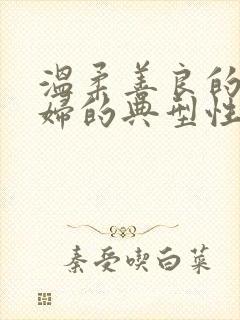 温柔善良的
妇的典型性
秦受喫白菜